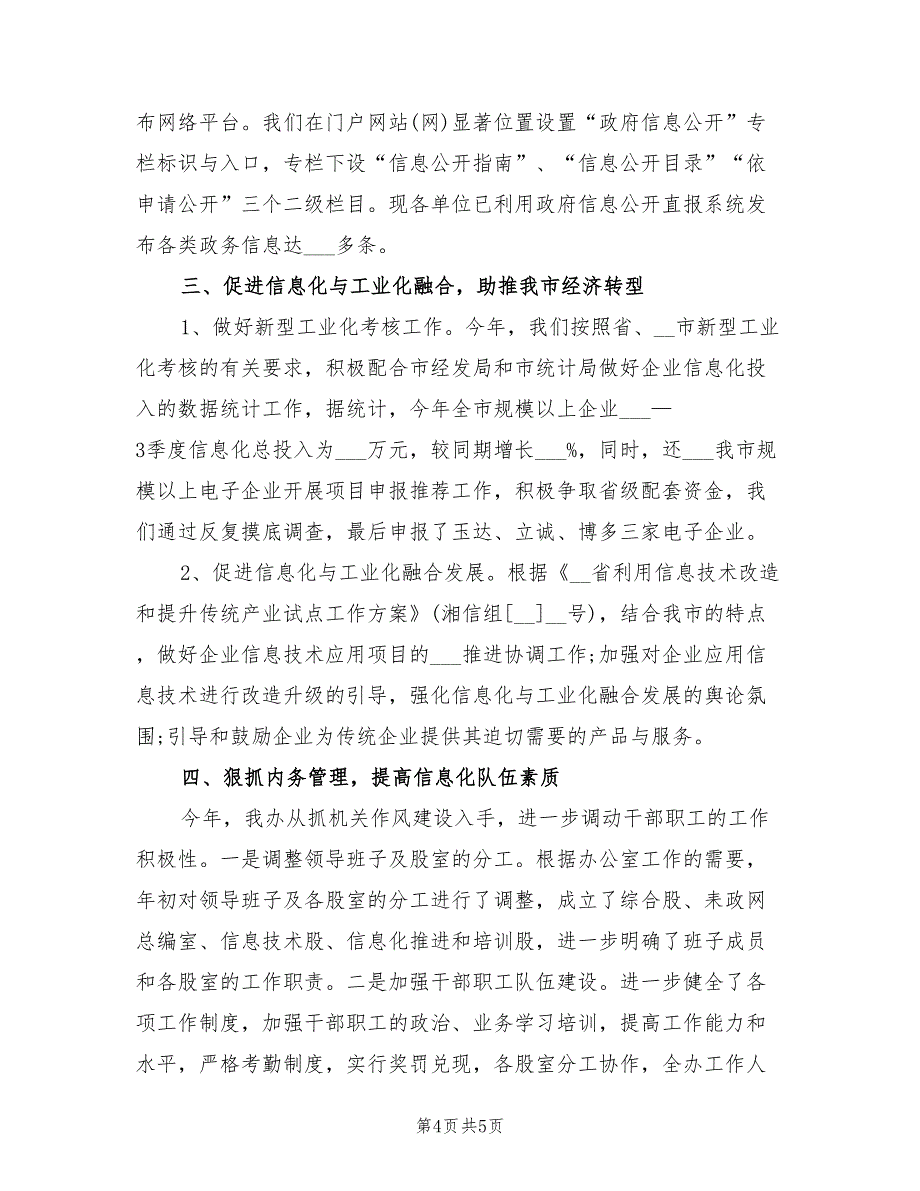 布网络平台。我们在门户网站(网)显著位置设置“政府信息公开”专
栏标识与入口，专栏下设“信息公开指南”、“信息公开目录”“依
申请公开”三个二级栏目。现各单位已利用政府信息公开直报系统发
布各类政务信息达___多条。
三、促进信息化与工业化融合，助推我市经济转型
1、做好新型工业化考核工作。今年，我们按照省、__市新型工业
化考核的有关要求，积极配合市经发局和市统计局做好企业信息化投
入的数据统计工作，据统计，今年全市规模以上企业___—
3季度信息化总投入为___万元，较同期增长___%，同时，还___我市规
模以上电子企业开展项目申报推荐工作，积极争取省级配套资金，我
们通过反复摸底调查，最后申报了玉达、立诚、博多三家电子企业。
2、促进信息化与工业化融合发展。根据《__省利用信息技术改造
和提升传统产业试点工作方案》(湘信组[__]__号)，结合我市的特点
，做好企业信息技术应用项目的___推进协调工作;加强对企业应用信
息技术进行改造升级的引导，强化信息化与工业化融合发展的舆论氛
围;引导和鼓励企业为传统企业提供其迫切需要的产品与服务。
四、狠抓内务管理，提高信息化队伍素质
今年，我办从抓机关作风建设入手，进一步调动干部职工的工作
积极性。一是调整领导班子及股室的分工。根据办公室工作的需要，
年初对领导班子及各股室的分工进行了调整，成立了综合股、耒政网
总编室、信息技术股、信息化推进和培训股，进一步明确了班子成员
和各股室的工作职责。二是加强干部职工队伍建设。进一步健全了各
项工作制度，加强干部职工的政治、业务学习培训，提高工作能力和
水平，严格考勤制度，实行奖罚兑现，各股室分工协作，全办工作人
第4页共5页